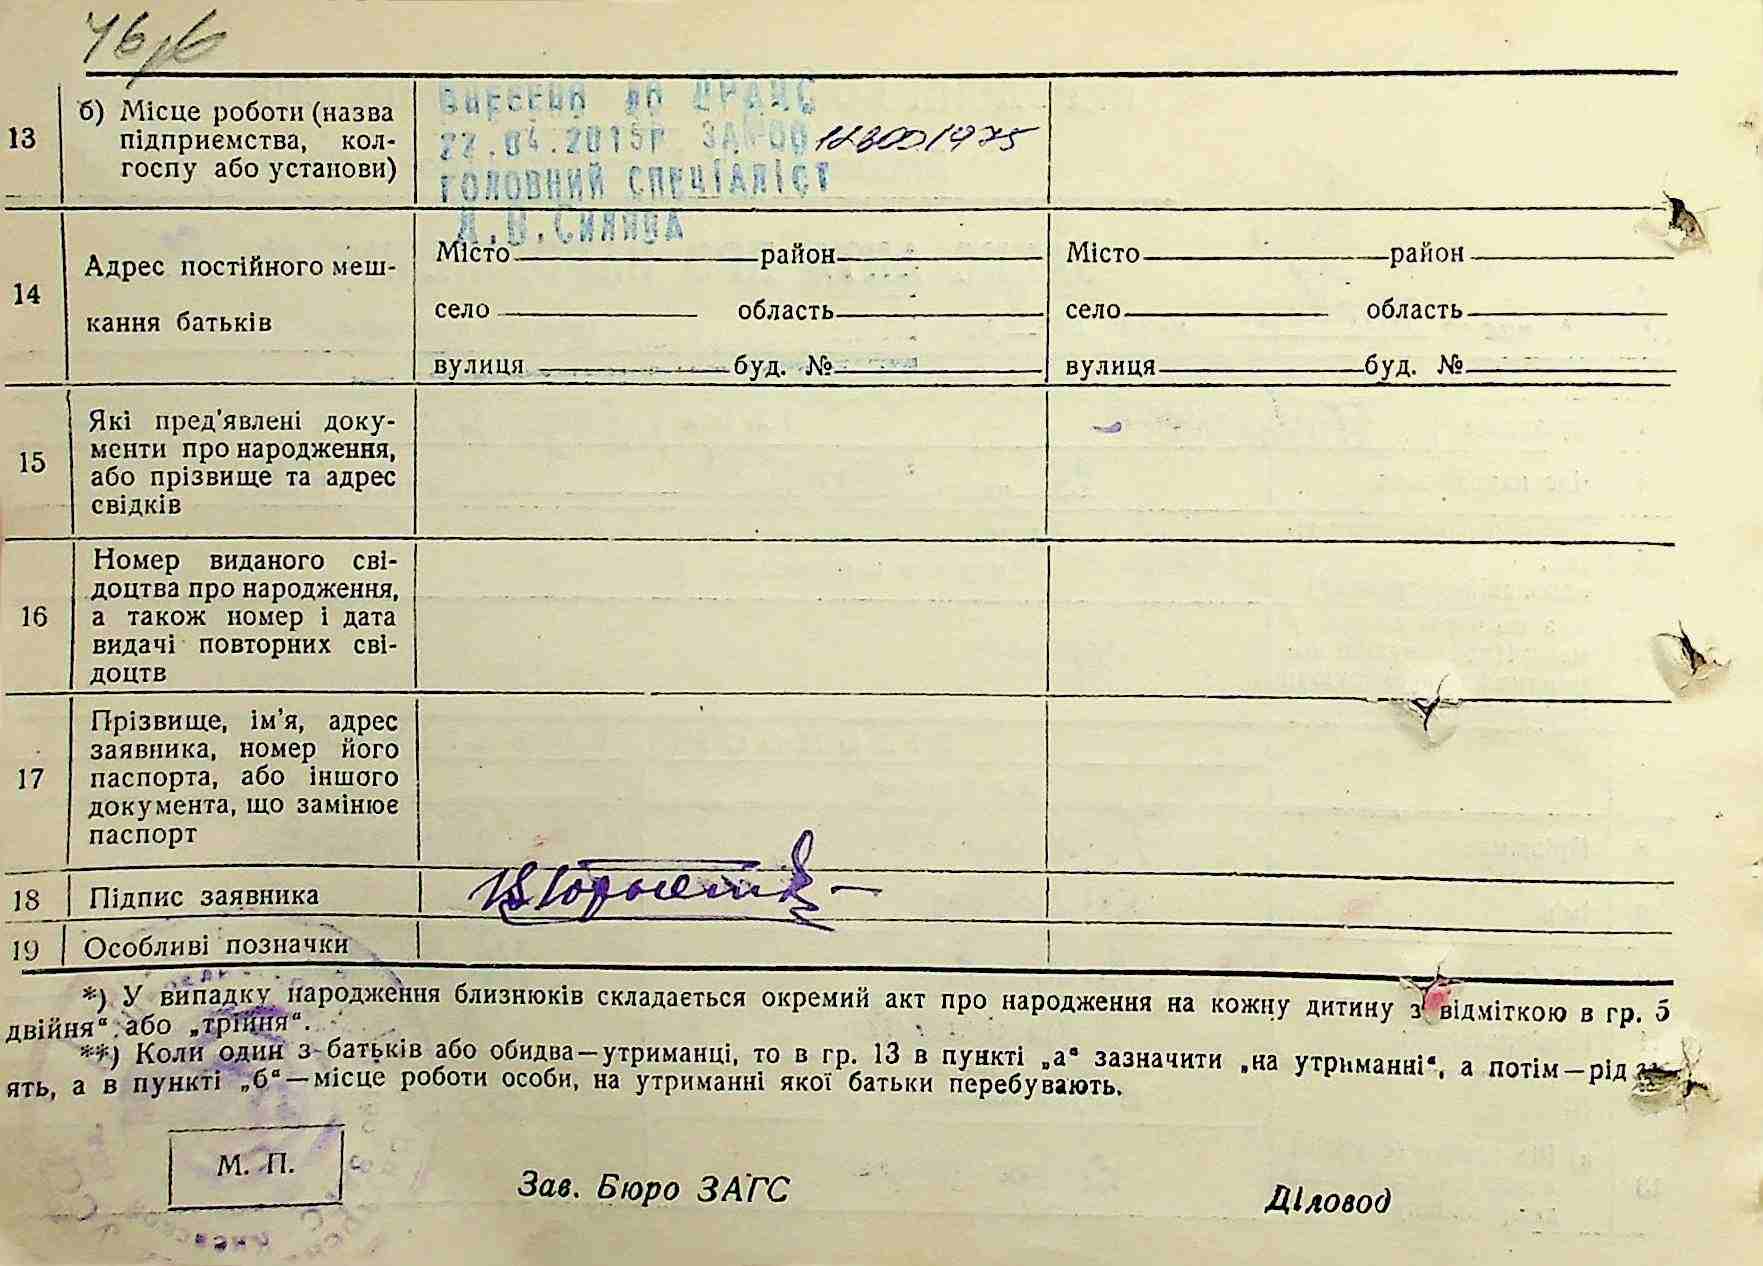 13
б) Місце роботи (назва
підприємства, кол-
госпу або установи)
Внесено до ДРАЦС
22.04.2015р ЗА №001123001975
ГОЛОВНИЙ СПЕЦІАЛІСТ
14
Адрес постійного меш-
кання батьків
Місто район
село область
вулиця буд. №
Місто район
село область
вулиця буд. №
15
Які пред'явлені доку-
менти про народження,
або прізвище та адрес
свідків
16
Номер виданого сві-
доцтва про народження,
а також номер і дата
видачі повторних сві-
доцтв
17
Прізвище, ім'я, адрес
заявника, номер його
паспорта, або іншого
документа, що замінює
паспорт
18
Підпис заявника
19
Особливі позначки
*) У випадку народження близнюків складається окремий акт про народження на кожну дитину з відміткою в гр. 5
двійня“ або „трійня“.
**) Коли один з батьків або обидва—утриманці, то в гр. 13 в пункті „а“ зазначити „на утриманні“, а потім—рід
ять, а в пункті „б“—місце роботи особи, на утриманні якої батьки перебувають.
М. П.
Зав. Бюро ЗАГС
Діловод